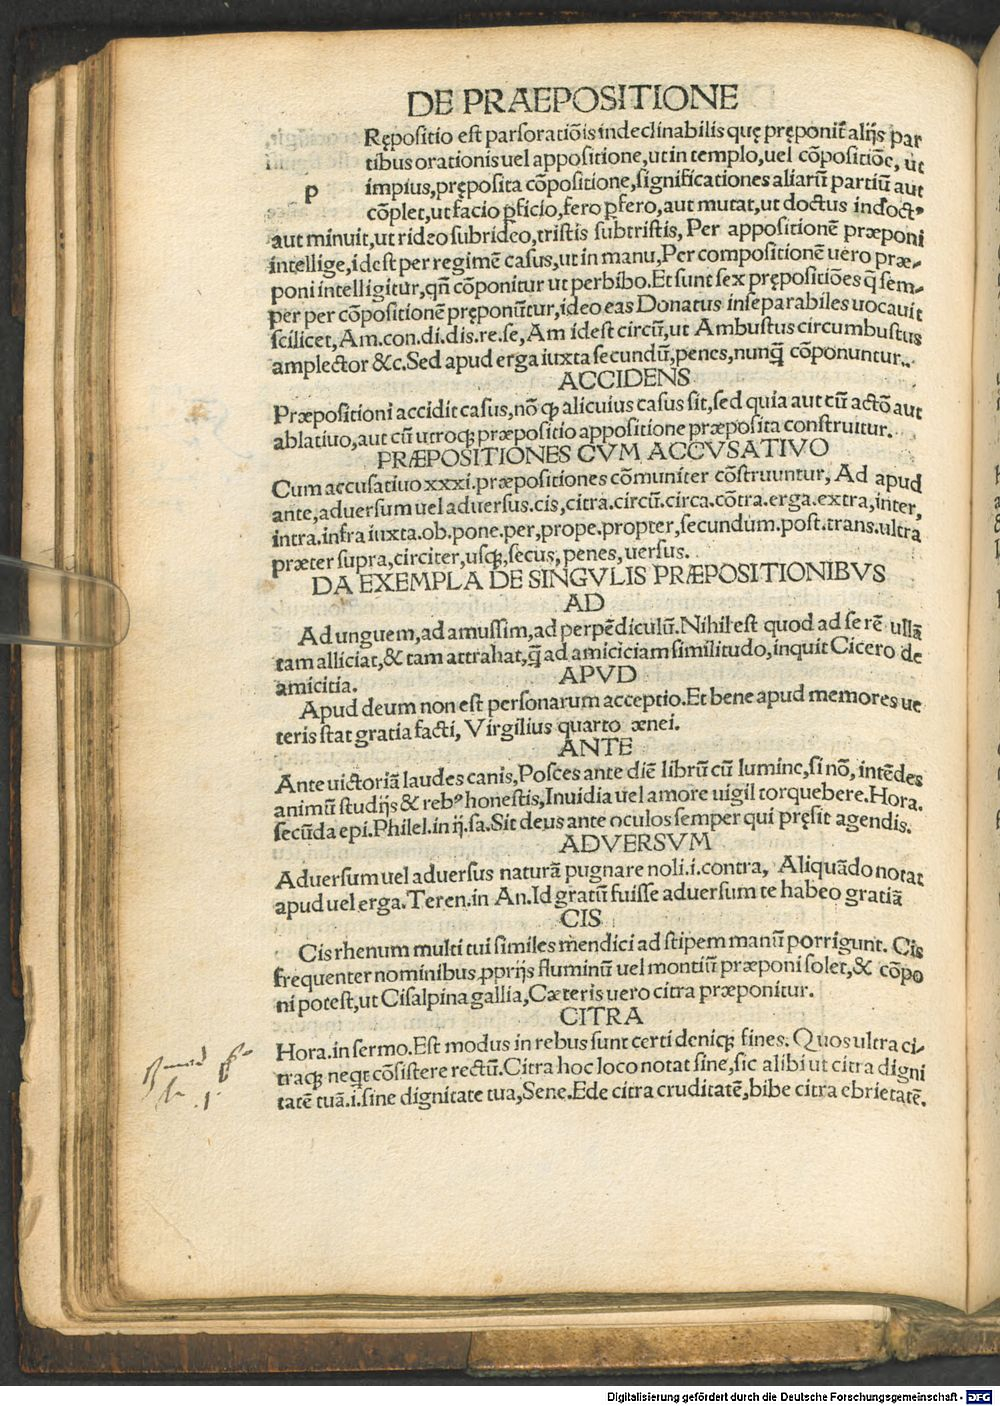 DE PRAEPOSITIONE
pRępositio est pars oratiõis indeclinabilis quę pręponit᷑ alijs par
tibus orationis uel appositione, ut in templo, uel cõpositiõe, ut
impius, pręposita cõpositione, significationes aliarũ partiũ aut
cõplet, ut facio ꝑficio, fero ꝑfero, aut mutat, ut doctus indoctꝰ
aut minuit, ut rideo subrideo, tristis subtristis, Per appositionẽ præponi
intellige, idest per regimẽ casus, ut in manu, Per compositionẽ uero præ-
poni intelligitur, qñ cõponitur ut perbibo. Et sunt sex prępositiões q̃ sem-
per per cõpositionẽ pręponũtur, ideo eas Donatus inseparabiles uocauit
scilicet, Am. con. di. dis. re. se, Am idest circũ, ut Ambustus circumbustus
amplector &c. Sed apud erga iuxta secundũ, penes, nunq̃ cõponuntur..
ACCIDENS
Præpositioni accidit casus, nõ ꝙ alicuius casus sit, sed quia aut cũ actõ aut
ablatiuo, aut cũ utroqꝫ præpositio appositione præposita construitur.
PRÆPOSITIONES CVM ACCVSATIVO
Cum accusatiuo xxxi. præpositiones cõmuniter cõstruuntur, Ad apud
ante, aduersum uel aduersus. cis, citra. circũ. circa. cõtra. erga. extra, inter,
intra. infra iuxta. ob. pone. per, prope. propter, secundum. post. trans. ultra
præter supra, circiter, usqꝫ, secus, penes, uersus.
DA EXEMPLA DE SINGVLIS PRÆPOSITIONIBVS
AD
Ad unguem, ad amussim, ad perpẽdiculũ. Nihil est quod ad se rẽ ullã
tam alliciat, & tam attrahat, q̃ ad amiciciam similitudo, inquit Cicero de
amicitia.
APVD
Apud deum non est personarum acceptio. Et bene apud memores ue
teris stat gratia facti, Virgilius quarto ænei.
ANTE
Ante uictoriã laudes canis, Posces ante diẽ librũ cũ lumine, si nõ, intẽdes
animũ studijs & rebꝰ honestis, Inuidia uel amore uigil torquebere. Hora.
secũda epi. Philel. in ij. sa. Sit deus ante oculos semper qui pręsit agendis.
ADVERSVM
Aduersum uel aduersus naturã pugnare noli. i. contra, Aliquãdo notat
apud uel erga. Teren. in An. Id gratũ fuisse aduersum te habeo gratiã
CIS
Cis rhenum multi tui similes mendici ad stipem manũ porrigunt. Cis
frequenter nominibus ꝓprijs fluminũ uel montiũ præponi solet, & cõpo
ni potest, ut Cisalpina gallia, Cæteris uero citra præponitur.
CITRA
Hora. in sermo. Est modus in rebus sunt certi deniqꝫ fines. Quos ultra ci-
traqꝫ neqt cõsistere rectũ. Citra hoc loco notat sine, sic alibi ut citra digni
tatẽ tuã. i. sine dignitate tua, Sene. Ede citra cruditatẽ, bibe citra ebrietatẽ.
Digitalisierung gefördert durch die Deutsche Forschungsgemeinschaft - DFG